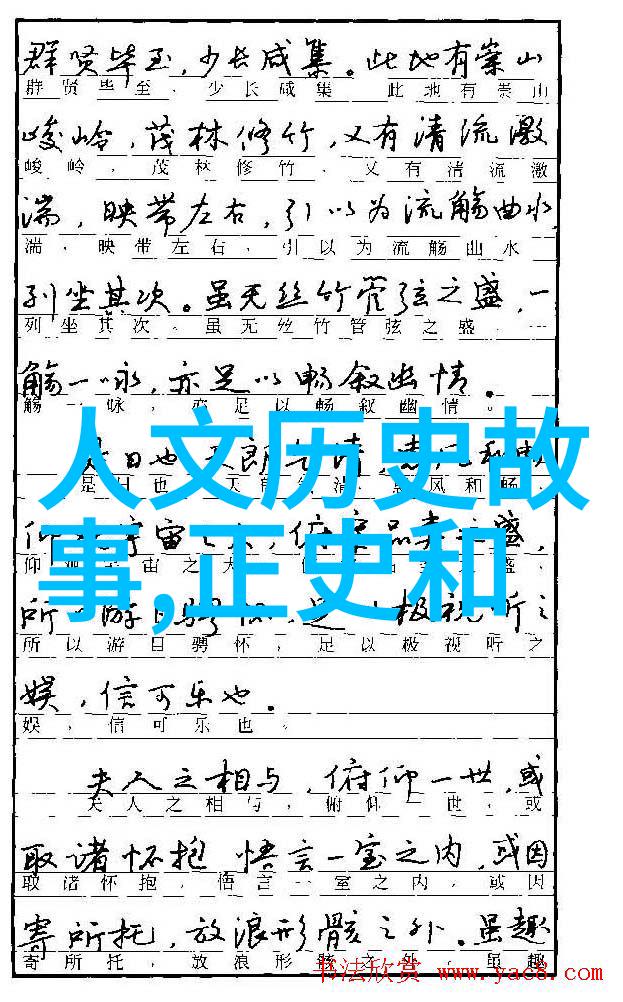 群贤毕至，少长咸集。此地有崇山
群贤毕至，少长咸集 此地有崇山
峻岭，茂林修竹，又有清流激
峻岭，茂林修竹，又有清流激
湍，映带左右，引以为流觞曲水，
湍，映带左右，引以为流觞曲水
列坐其次。虽无丝竹管弦之盛，一
列坐其次。虽无丝竹管弦之盛，一
觞一咏，亦足以畅叙幽情。
觞一咏，亦足以畅叙幽情。
人文历史故
日也 朗
是日也 天 风和畅
事,正史和
宇宙 盛，
仰 宙之大 盛，
所 游目骋 极视听之
所以游目骋怀，足以极视听之
娱，信可乐也。
娱，信可乐也。
夫人之相与，俯仰一世，或
夫人之相与，俯仰一世，或
取诸怀抱 悟言一室之内，或因
取诸怀抱，悟言一室之内，或因
寄所托，放浪形骸之外。虽趣
寄所托，放浪形骸之外。虽趣
书法欣赏 www.yac8.com